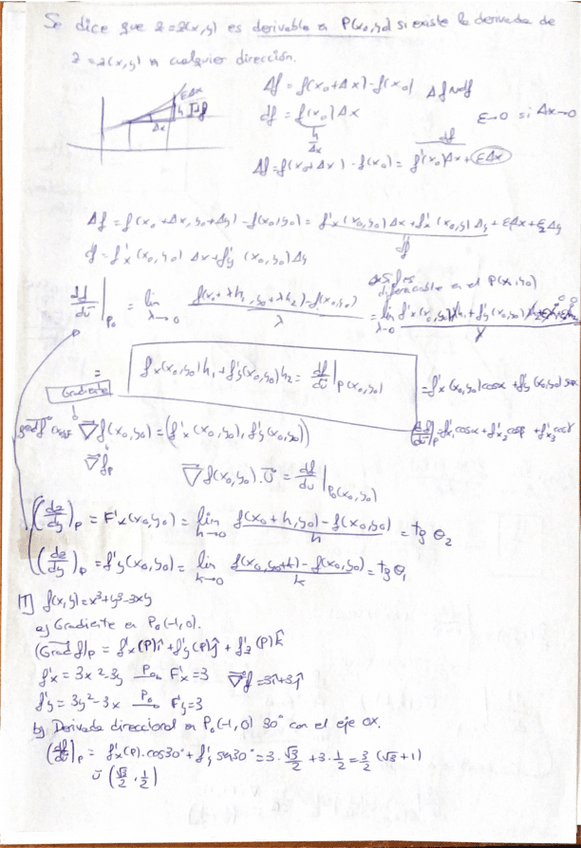 Se dice que z=z(x,y) es derivable en P(x₀,y₀) si existe la derivada de
z=z(x,y) en cualquier dirección.
Δf = f(x₀+Δx)-f(x₀) Δf≈df
df = f'(x₀)Δx ε→0 si Δx→0
h
Δx
εΔx
Δx
df
Δf=f(x₀+Δx)-f(x₀)= f'(x₀)Δx+εΔx
Δf = f(x₀+Δx, y₀+Δy)-f(x₀,y₀) = f'x(x₀,y₀)Δx+f'x(x₀,y₀)Δy+ε₁Δx+ε₂Δy
df
df = f'x(x₀,y₀) Δx+f'y(x₀,y₀)Δy
diferenciable en el P(x₀,y₀)
df/dū|P₀ = lim λ→0 f(x₀+λh₁, y₀+λh₂)-f(x₀,y₀) / λ = lim λ→0
= f'x(x₀,y₀)h₁+f'y(x₀,y₀)h₂ = df/dū|P(x₀,y₀) = f'x(x₀,y₀)cosα+f'y(x₀,y₀)senα
Gradiente
∇f(x₀,y₀)=(f'x(x₀,y₀), f'y(x₀,y₀)) (df/dū)P=f'x₁cosα+f'x₂cosβ+f'x₃cosγ
∇fP
∇f(x₀,y₀).Ū = df/dū|P₀(x₀,y₀)
(dz/dy)P = F'x(x₀,y₀) = lim h→0 f(x₀+h,y₀)-f(x₀,y₀) / h = tg θ₂
(dz/dy)P = f'y(x₀,y₀) = lim k→0 f(x₀,y₀+k)-f(x₀,y₀) / k = tg θ₁
1) f(x,y)=x³+y³-3xy
a) Gradiente en P₀(-1,0).
(Grad f)P = f'x(P)î+f'y(P)ĵ+f'z(P)k̂
f'x = 3x²-3y P₀→ F'x=3 ∇f=3î+3ĵ
f'y = 3y²-3x P₀→ F'y=3
b) Derivada direccional en P₀(-1,0) 30° con el eje OX.
(df/dū)P = f'x(P).cos30°+f'y sen30°=3.√3/2+3.1/2=3/2(√3+1)
Ū(√3/2,1/2)